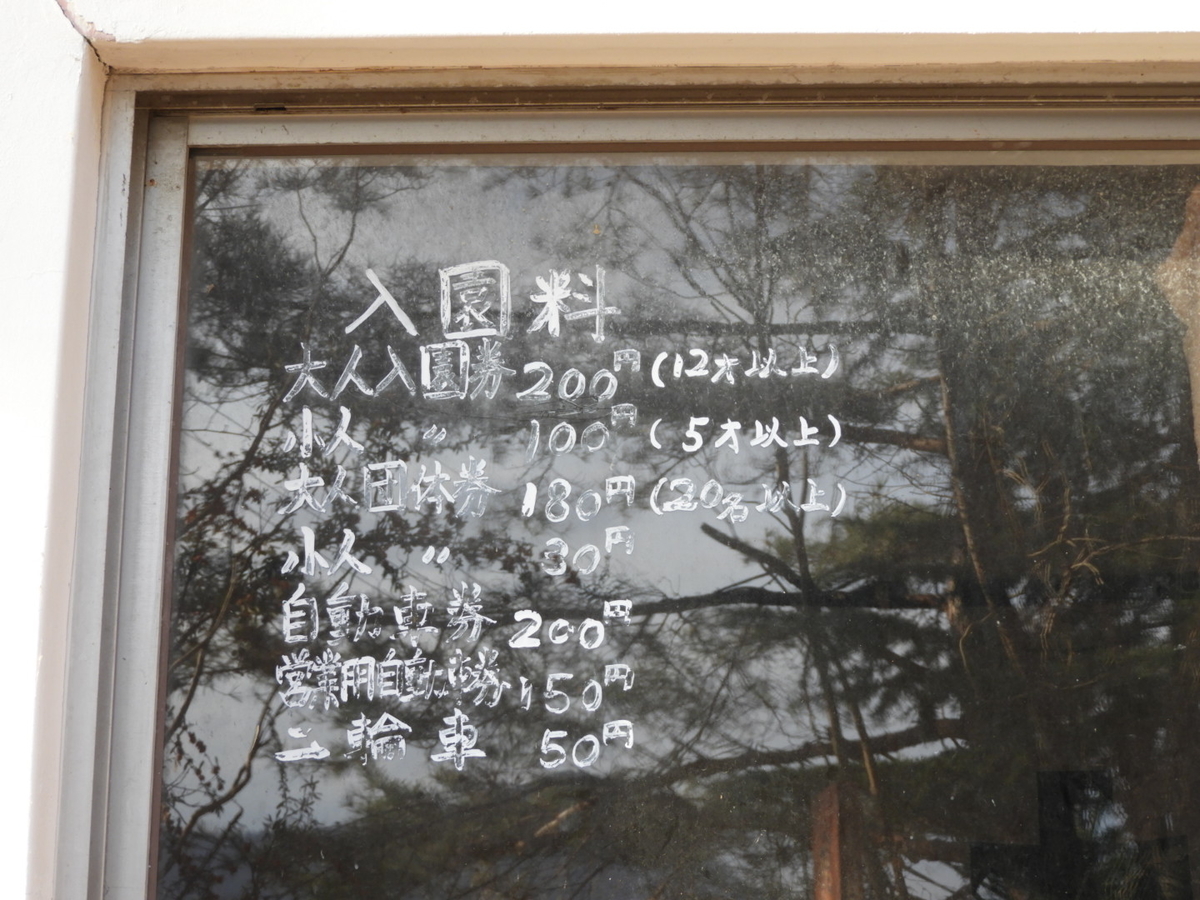 入園料
大人入園券 200円 (12才以上)
小人 〃 100円 (5才以上)
大人団体券 180円 (20名以上)
小人 〃 30円
自動車券 200円
営業用自動車券 150円
二輪車 50円